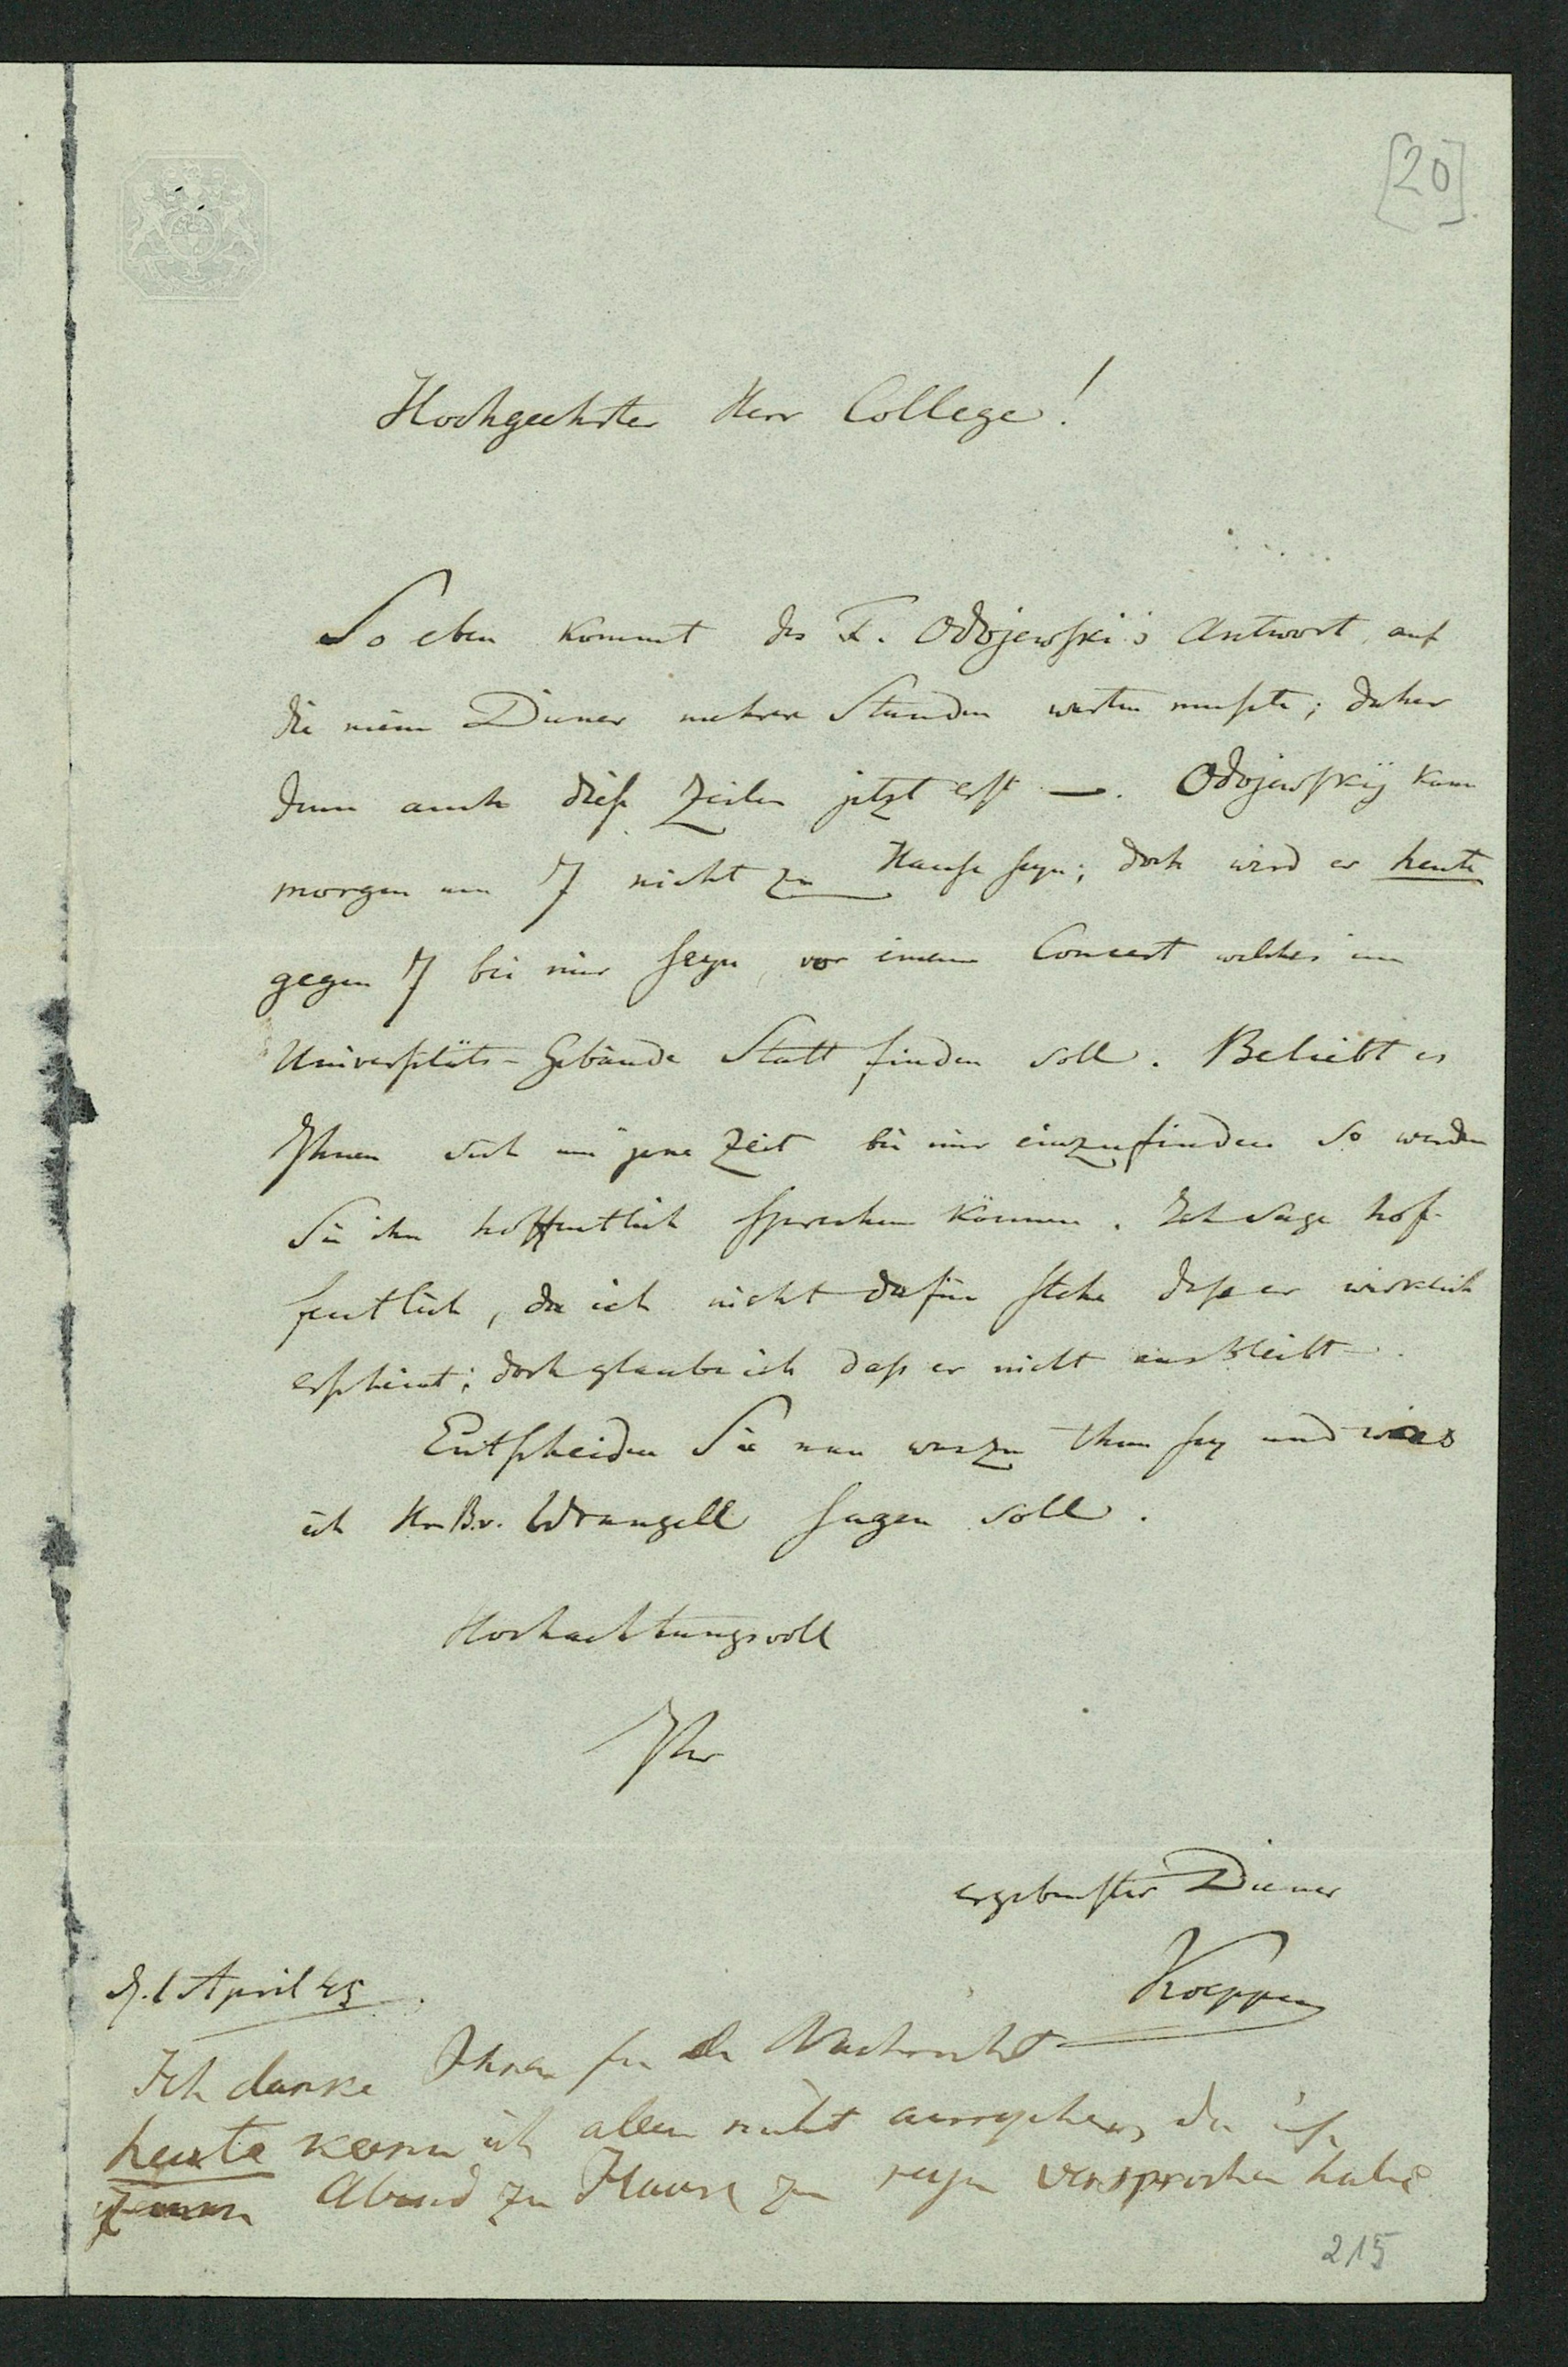 [20]
Hochgeehrter Herr College!
So eben kommt des F. Odojewski's Antwort, auf
die mein Diener mehrere Stunden warten musste; daher
denn auch diese Zeilen jetzt erst —. Odojewskij kann
morgen um 7 nicht zu Hause seyn; doch wird er heute
gegen 7 bei mir seyn, vor einem Concert welches im
Universitäts-Gebäude Statt finden soll. Beliebt es
Ihnen sich um jene Zeit bei mir einzufinden so werden
Sie ihn hoffentlich sprechen können. Ich sage hof-
fentlich, da ich nicht dafür stehe dass er wirklich
erscheint; doch glaube ich dass er nicht ausbleibt.
Entscheiden Sie nun was zu thun sey und was
ich Hr. B. v. Wrangell sagen soll.
Hochachtungsvoll
Ihr
ergebenster Diener
Koeppen
d. 1 April 45.
Ich danke Ihnen für die Nachricht
heute kann ich allein nicht ausgehen, da ich
Abend zu Hause zu seyn versprochen habe
215